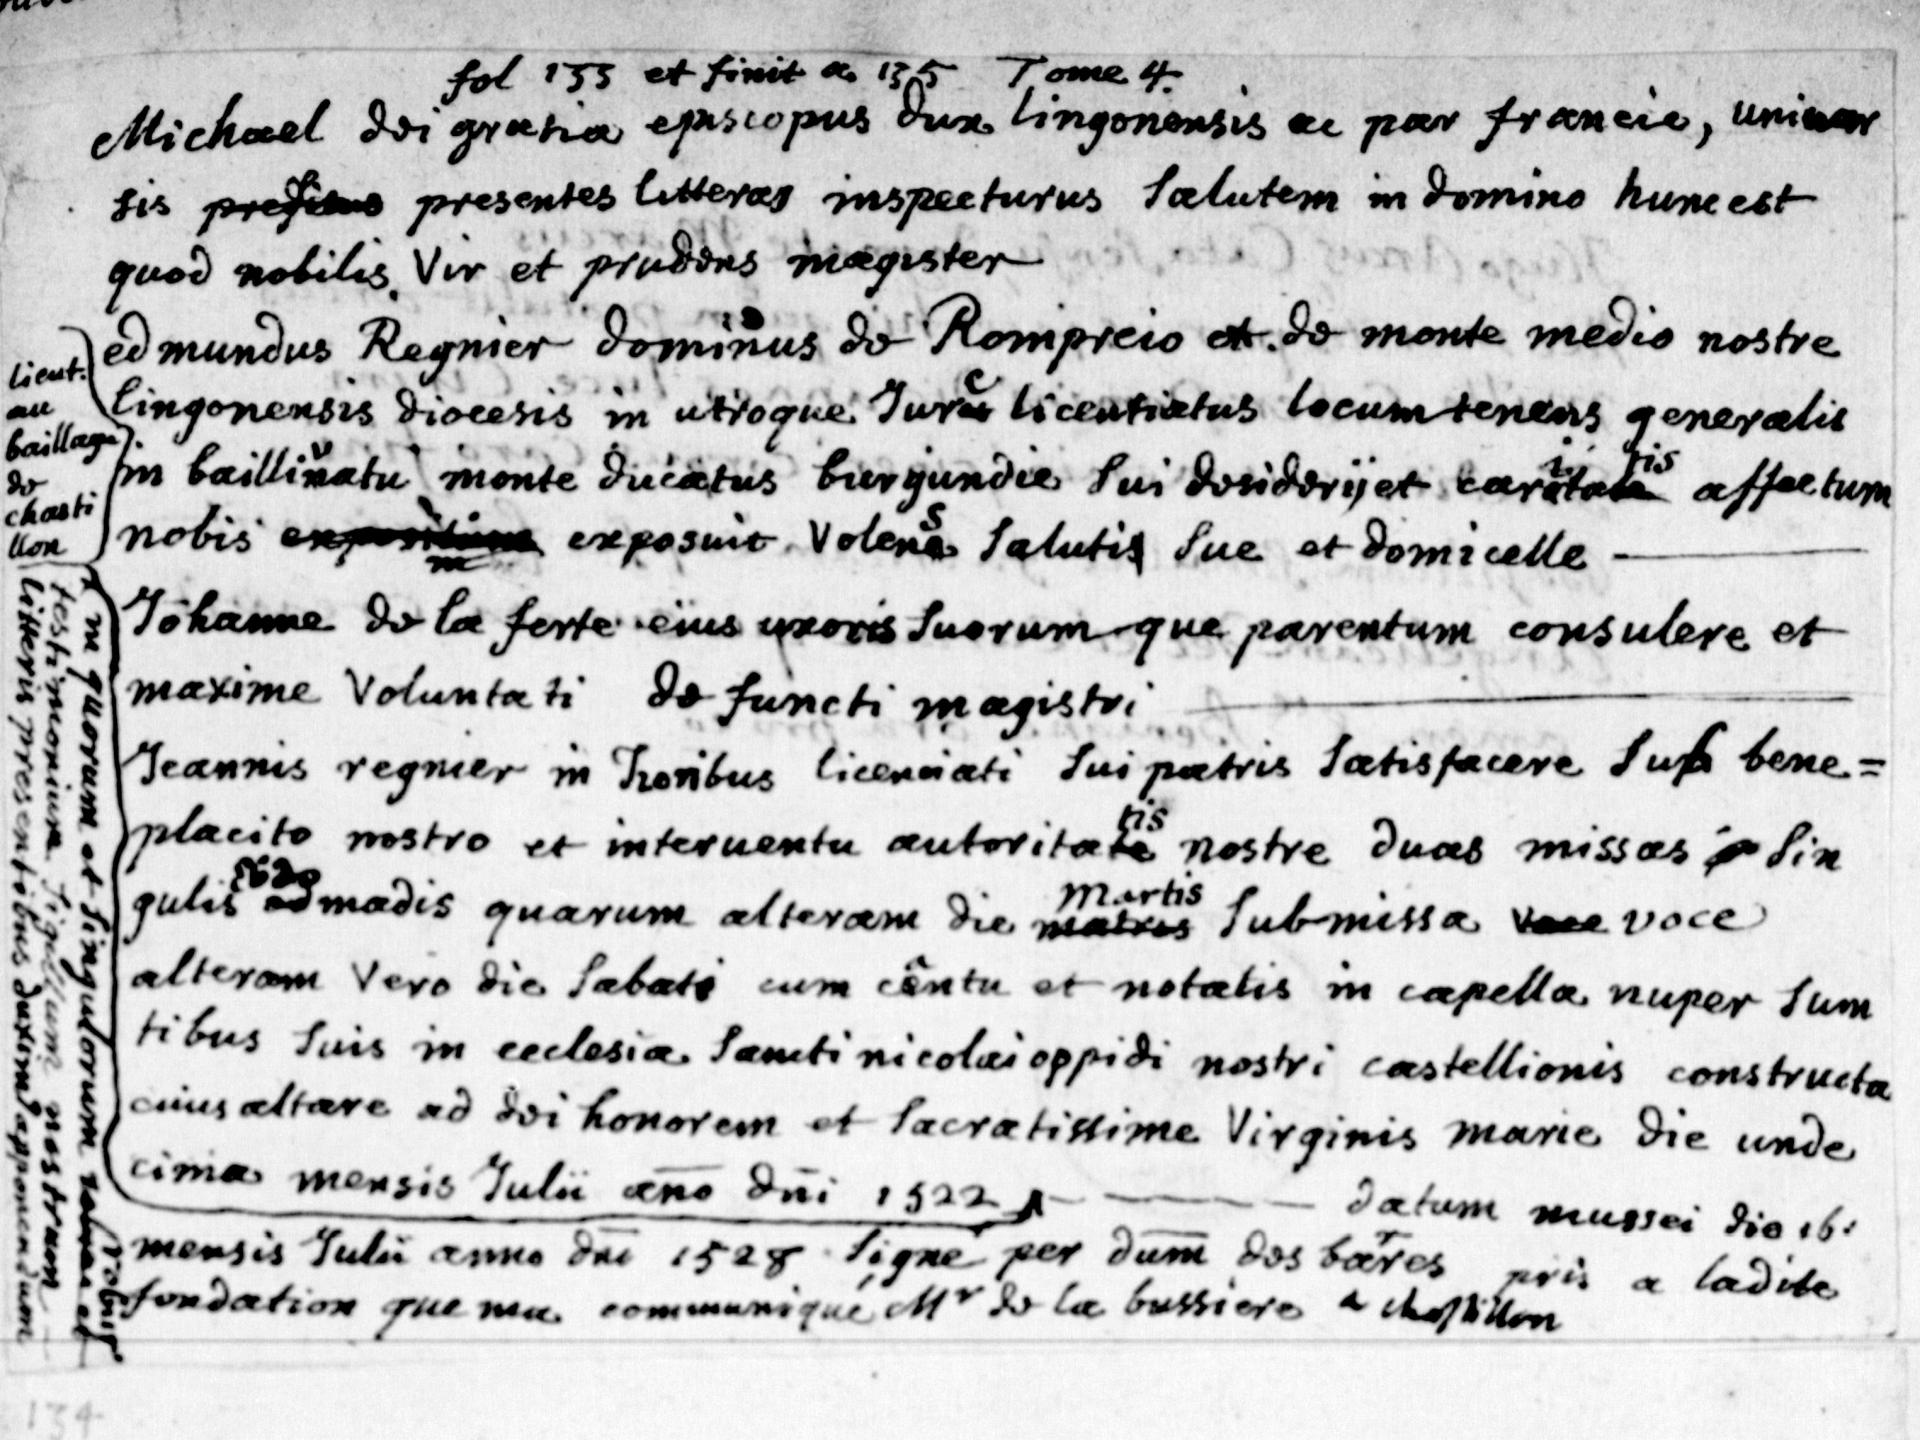 fol 133 et finit a 135 Tome 4.
Michael dei gratia episcopus dux lingonensis ac par francie, univer
sis presentes litteras inspecturus Salutem in domino hunc est
quod nobilis Vir et prudens magister
edmundus Regnier dominus de Rompreio et de monte medio nostre
lingonensis diocesis in utroque Jure licentiatus locum tenens generalis
in baillivatu monte ducatus burgundie Sui desiderij et caritatis affectum
nobis exposuit Volens Salutis Sue et domicelle
Johanne de la ferte eius uxoris Suorum que parentum consulere et
maxime Voluntati defuncti magistri
Jeannis regnier in licenciati Sui patris Satisfacere Sub bene=
placito nostro et interventu autoritatis nostre duas missas Sin
gulis ebdomadis quarum alteram die Martis Submissa voce
alteram Vero die Sabati cum cantu et notalis in capella nuper Sum
tibus Suis in ecclesia Sancti nicolai oppidi nostri castellionis constructa
cuius altare ad dei honorem et Sacratissime Virginis marie die unde
cima mensis Julii año dñi 1522
datum mussei die 16:
mensis Julii anno dni 1528 Signe per dum des barres pris a ladite
fondation que ma communiqué Mr de la bussiere a chastillon
lieut.
au
baillage
de
chasti
llon
in quorum et singulorum robur et
testimonium Sigillum nostrum
litteris presentibus duximus apponendum
134